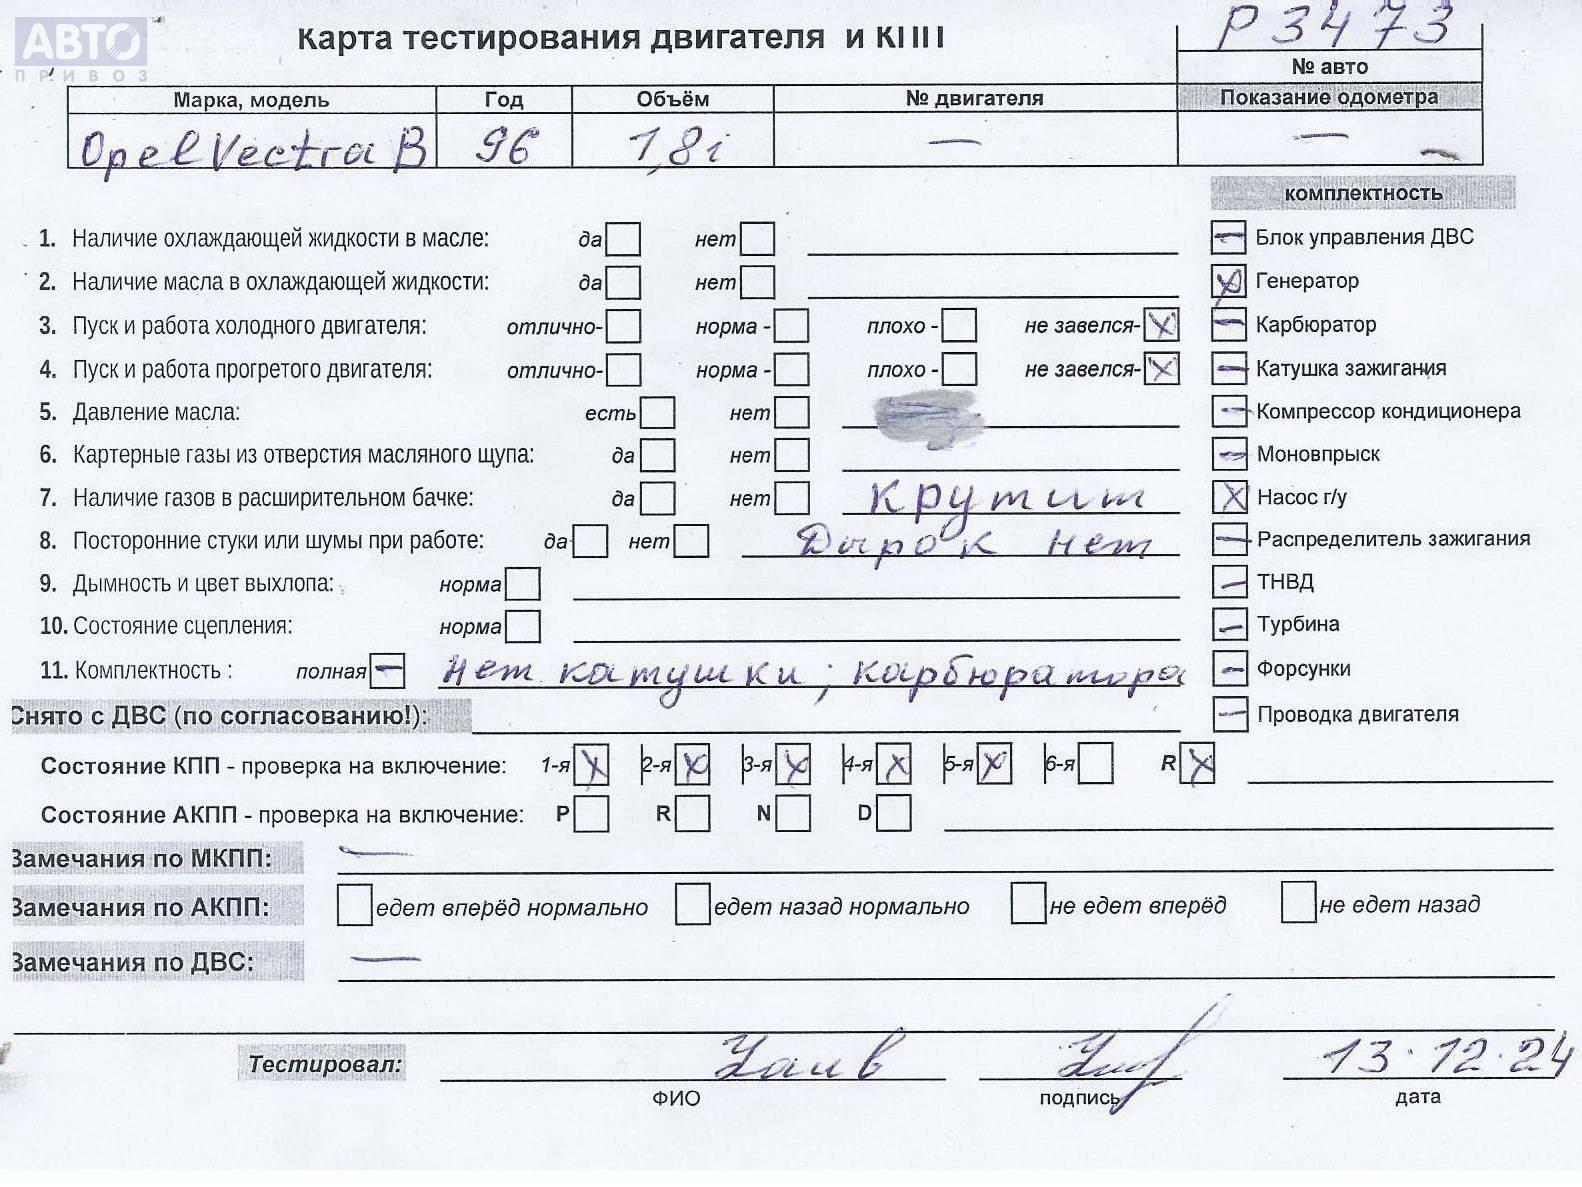 АВТО
ПРИВОЗ
Карта тестирования двигателя и КПП
Р3473
№ авто
Марка, модель Год Объём № двигателя Показание одометра
Opel Vectra B 96 1,8i — —
комплектность
1. Наличие охлаждающей жидкости в масле: да нет
Блок управления ДВС
2. Наличие масла в охлаждающей жидкости: да нет
Генератор
3. Пуск и работа холодного двигателя: отлично- норма - плохо - не завелся- X
Карбюратор
4. Пуск и работа прогретого двигателя: отлично- норма - плохо - не завелся- X
Катушка зажигания
5. Давление масла: есть нет
Компрессор кондиционера
6. Картерные газы из отверстия масляного щупа: да нет
Моновпрыск
7. Наличие газов в расширительном бачке: да нет Крутит
Насос г/у
8. Посторонние стуки или шумы при работе: да нет Дырок нет
Распределитель зажигания
9. Дымность и цвет выхлопа: норма
ТНВД
10. Состояние сцепления: норма
Турбина
11. Комплектность : полная — Нет катушки ; карбюратора
Форсунки
Снято с ДВС (по согласованию!):
Проводка двигателя
Состояние КПП - проверка на включение: 1-я X 2-я X 3-я X 4-я X 5-я X 6-я R X
Состояние АКПП - проверка на включение: P R N D
Замечания по МКПП: —
Замечания по АКПП: едет вперёд нормально едет назад нормально не едет вперёд не едет назад
Замечания по ДВС: —
Тестировал: 13.12.24
ФИО подпись дата